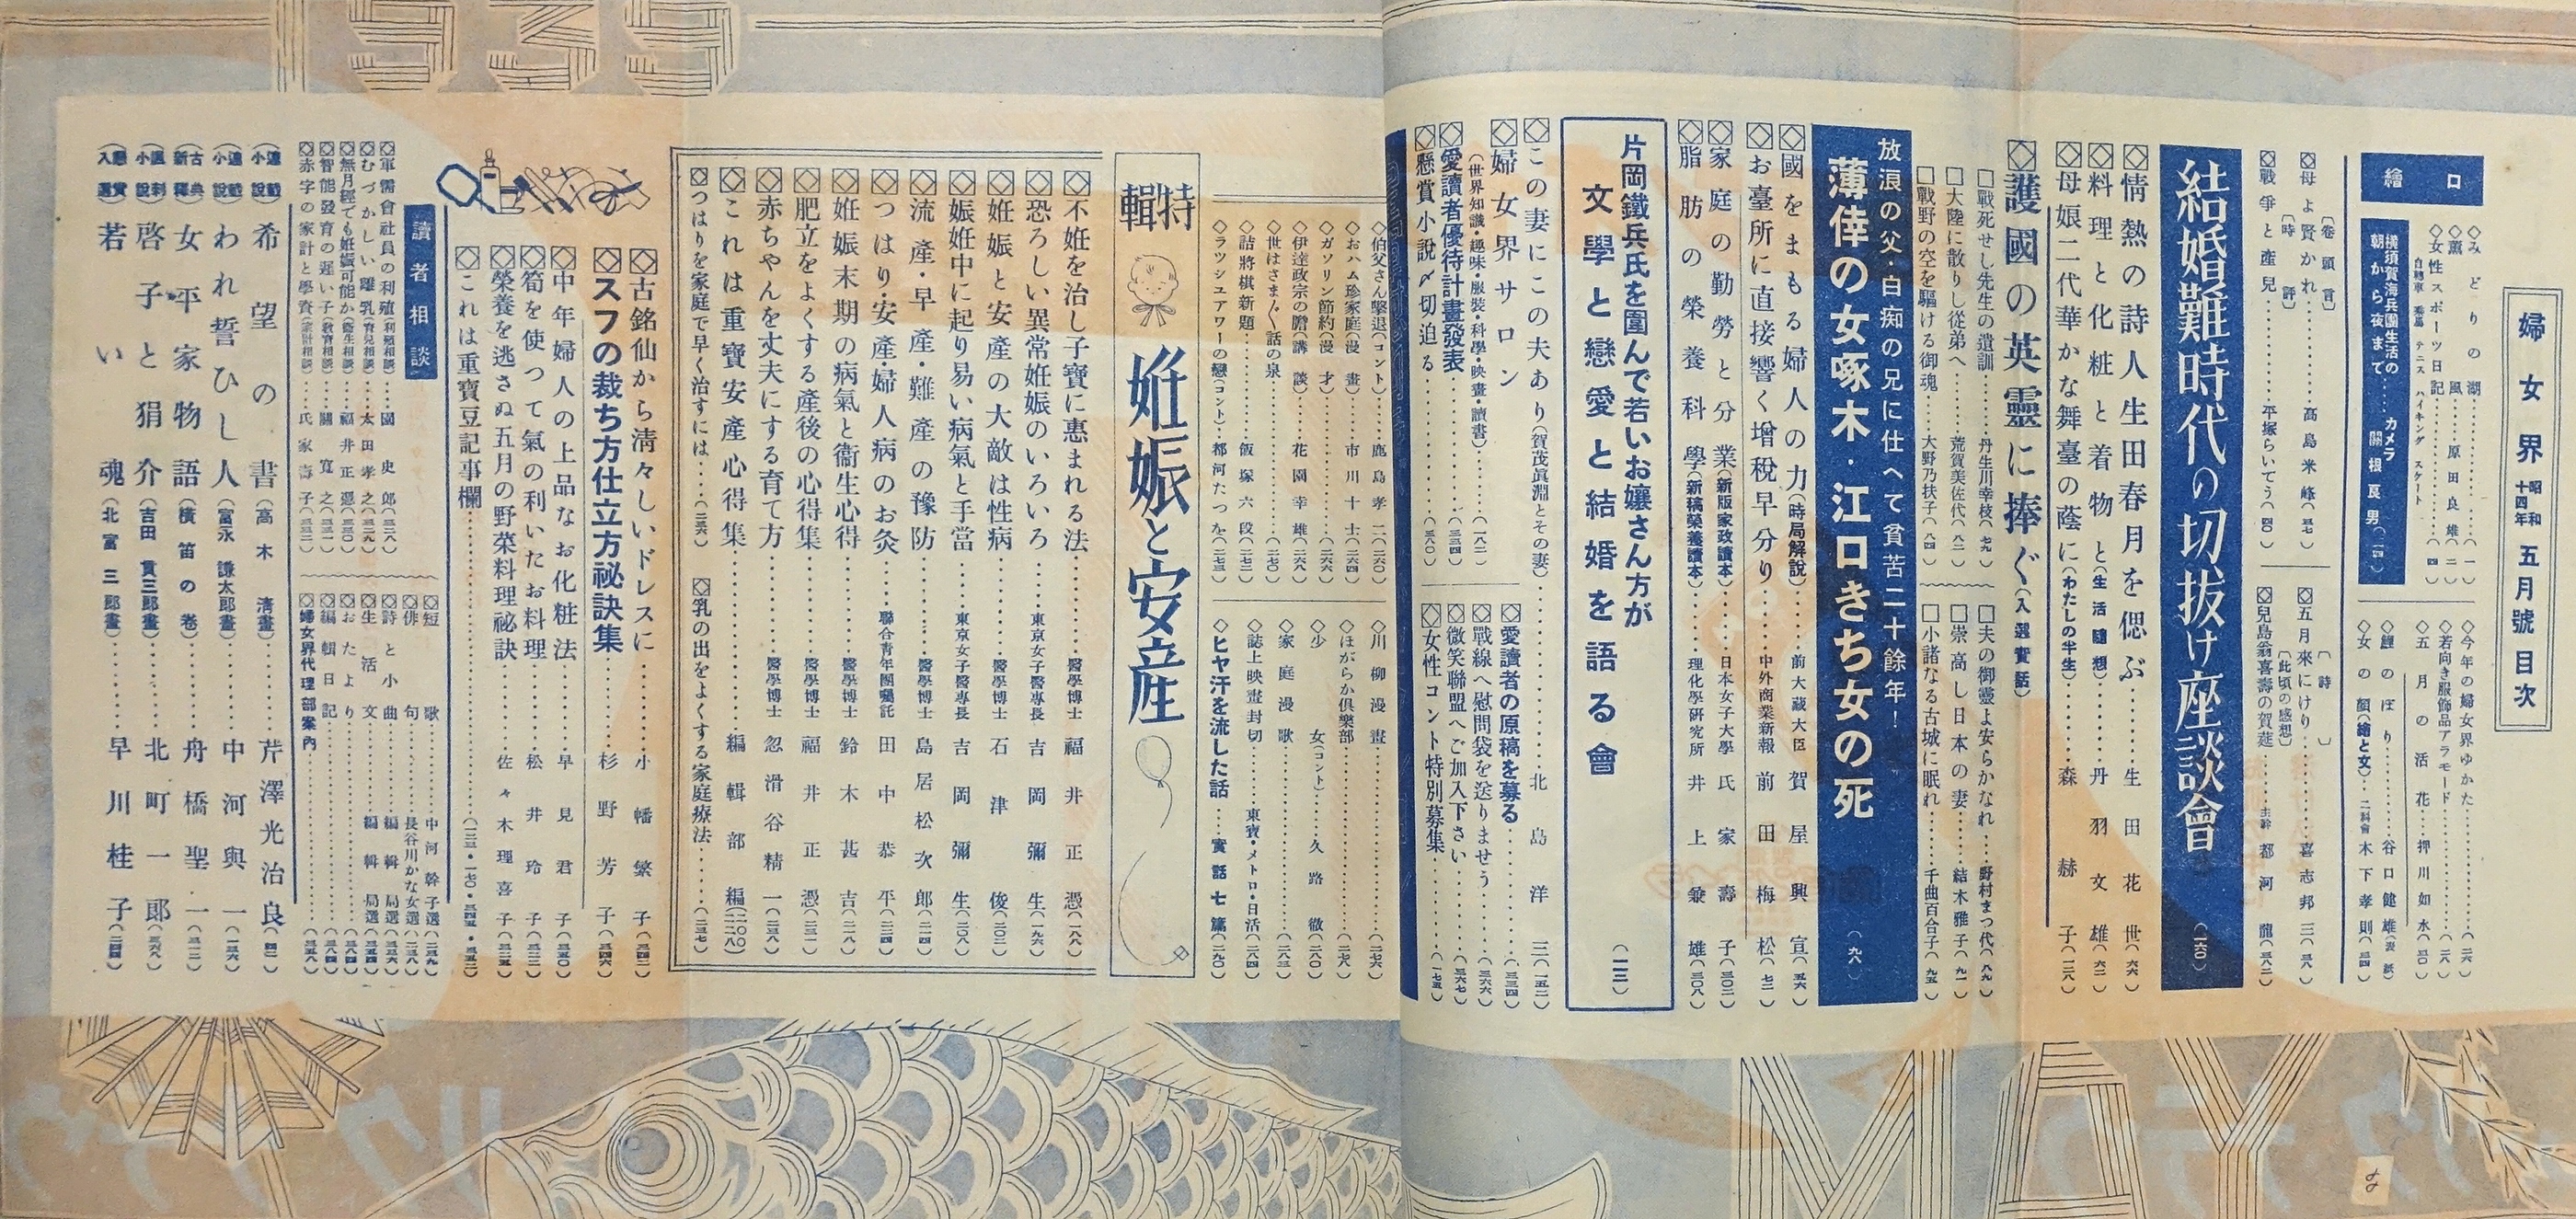 婦女界 昭和十四年 五月號目次
口繪
◇みどりの湖……(一)
◇薫風……原田良雄(二)
◇女性スポーツ日記……(四)
自轉車 乘馬 テニス ハイキング スケート
横須賀海兵團生活の
朝から夜まで……カメラ 關根良男(一四)
◇今年の婦女界ゆかた……(二六)
◇若向き服飾品アラモード……(二八)
◇五月の活花……押川如水(三〇)
◇鯉のぼり……谷口健雄(表紙)
◇女の顔(繪と文)……二科會 木下孝則(三四)
〔卷頭言〕
◇母よ賢かれ……高島米峰(三七)
〔時評〕
◇戰爭と產兒……平塚らいてう(四〇)
〔詩〕
◇五月來にけり……喜志邦三(三八)
〔此頃の感想〕
◇兒島翁喜壽の賀莚……主幹 都河龍(三八二)
結婚難時代の切抜け座談會(一六〇)
◇情熱の詩人生田春月を偲ぶ……生田花世(六六)
◇料理と化粧と着物と(生活隨想)……丹羽文雄(六二)
◇母娘二代華かな舞臺の蔭に(わたしの半生)……森赫子(一二八)
◇護國の英靈に捧ぐ(入選實話)
□戰死せし先生の遺訓……丹生川幸枝(七九)
□大陸に散りし從弟へ……荒賀美佐代(八二)
□戰野の空を驅ける御魂……大野乃扶子(八四)
□夫の御靈よ安らかなれ……野村まつ代(八九)
□崇高し日本の妻……結木雅子(九一)
□小諸なる古城に眠れ……千曲百合子(九五)
放浪の父・白痴の兄に仕へて貧苦二十餘年！
薄倖の女啄木・江口きち女の死(九八)
◇國をまもる婦人の力(時局解說)……前大藏大臣 賀屋興宣(五六)
◇お臺所に直接響く增稅早分り……中外商業新報 前田梅松(七二)
◇家庭の勤勞と分業(新版家政讀本)……日本女子大學 氏家壽子(三〇二)
◇脂肪の榮養科學(新稿榮養讀本)……理化學研究所 井上兼雄(三〇八)
片岡鐵兵氏を圍んで若いお孃さん方が
文學と戀愛と結婚を語る會(一一三)
◇この妻にこの夫あり(賀茂眞淵とその妻)……北島洋三(一五二)
◇婦女界サロン
(世界知識・趣味・服裝・科學・映畫・讀書)……(一八二)
◇愛讀者優待計畫發表……(三五四)
◇懸賞小說〆切迫る……(三八〇)
□愛讀者の原稿を募る……(三三四)
□戰線へ慰問袋を送りませう……(三六六)
□微笑聯盟へご加入下さい……(三六七)
□女性コント特別募集……(一七五)
◇伯父さん擊退(コント)……鹿島孝二(二六〇)
◇おハム珍家庭(漫畫)……市川十士(二六四)
◇ガソリン節約(漫才)……(二六六)
◇伊達政宗の膽(講談)……花園幸雄(二六八)
◇世はさまざま話の泉……(二七〇)
◇詰將棋新題……飯塚六段(二七二)
◇ラツシユアワーの戀(コント)……都河たつを(二七三)
◇川柳漫畫……(二七六)
◇ほがらか俱樂部……(二七八)
◇少女(コント)……久路徹(二八〇)
◇家庭漫歌……(二八三)
◇誌上映畫封切……東寶・メトロ・日活(二八四)
◇ヒヤ汗を流した話……實話七篇(二九〇)
特輯 姙娠と安產
◇不姙を治し子寶に惠まれる法……醫學博士 福井正憑(一八八)
◇恐ろしい異常姙娠のいろいろ……東京女子醫專長 吉岡彌生(一九六)
◇姙娠と安產の大敵は性病……醫學博士 石津俊(二〇二)
◇姙娠中に起り易い病氣と手當……東京女子醫專長 吉岡彌生(二〇八)
◇流產・早產・難產の豫防……醫學博士 島居松次郎(二一四)
◇つはり・安產・婦人病のお灸……聯合青年團囑託 田中恭平(二二四)
◇姙娠末期の病氣と衞生心得……醫學博士 鈴木甚吉(二一八)
◇肥立をよくする產後の心得集……醫學博士 福井正憑(二三一)
◇赤ちやんを丈夫にする育て方……醫學博士 忽滑谷精一(二三八)
◇これは重寶安產心得集……編輯部編
◇つはりを家庭で早く治すには……(二三六)
◇乳の出をよくする家庭療法……(二三七)
◇古銘仙から淸々しいドレスに……小幡繁子(三四二)
◇スフの裁ち方仕立方祕訣集……杉野芳子(三四六)
◇中年婦人の上品なお化粧法……早見君子(三五〇)
◇筍を使つて氣の利いたお料理……松井玲子(三二二)
◇榮養を逃さぬ五月の野菜料理祕訣……佐々木理喜子(三二五)
◇これは重寶豆記事欄……
讀者相談
◇軍需會社員の利殖(利殖相談)……園史郎(三二八)
◇むづかしい離乳(育兒相談)……太田孝之(三二九)
◇無月經でも姙娠可能か(衞生相談)……福井正憑(三三〇)
◇智能發育の遲い子(敎育相談)……關寬之(三三一)
◇赤字の家計と學資(家計相談)……氏家壽子(三三二)
◇短歌……中河幹子選(二三九)
◇俳句……長谷川かな女選(二三八)
◇詩と小曲……編輯局選(三五六)
◇生活文……編輯局選(三五四)
◇おたより……(三八四)
◇編輯日記……(三八四)
◇婦女界代理部案內……(三五八)
(連載小說) 希望の書(高木淸畫)……芹澤光治良(四二)
(連載小說) われ誓ひし人(富永謙太郎畫)……中河與一(一三六)
(古典新釋) 女平家物語(橫笛の卷)……舟橋聖一(三一二)
(諷刺小說) 啓子と狷介(吉田貫三郎畫)……北町一郎(三六八)
(懸賞入選) 若い魂(北富三郎畫)……早川桂子(二四四)
1939
MAY